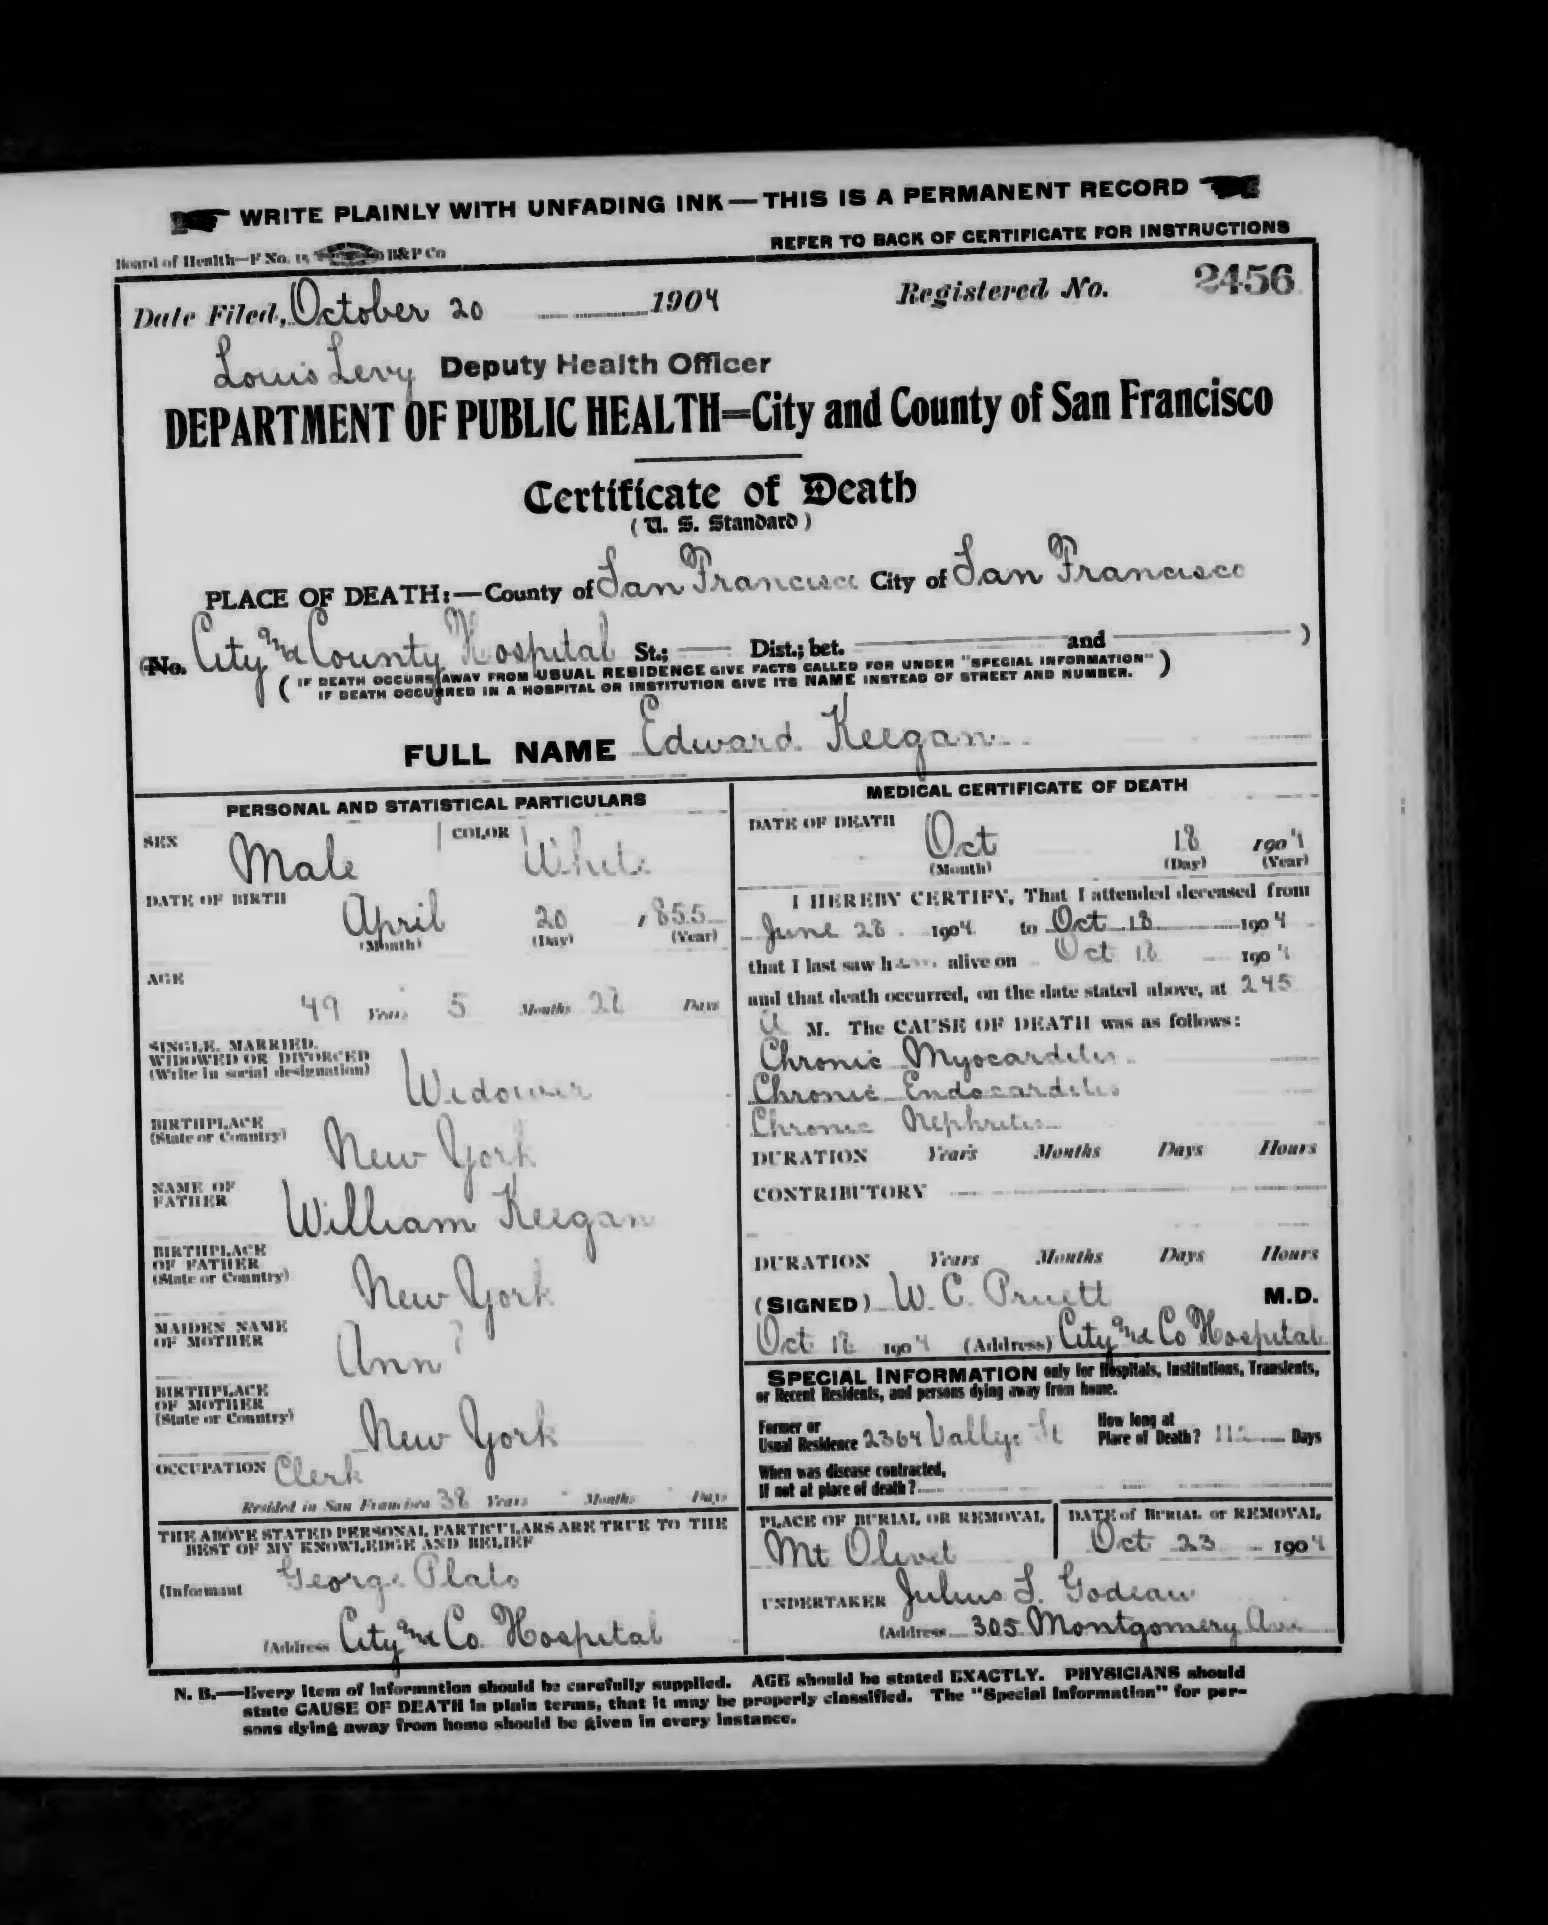 WRITE PLAINLY WITH UNFADING INK—THIS IS A PERMANENT RECORD
Board of Health—F No. 15 B&P Co
REFER TO BACK OF CERTIFICATE FOR INSTRUCTIONS
Date Filed, October 20 1904 Registered No. 2456
Louis Levy Deputy Health Officer
DEPARTMENT OF PUBLIC HEALTH=City and County of San Francisco
Certificate of Death
( U. S. Standard )
PLACE OF DEATH:—County of San Francisco City of San Francisco
(No. City and County Hospital St.; Dist.; bet. and )
( IF DEATH OCCURS AWAY FROM USUAL RESIDENCE GIVE FACTS CALLED FOR UNDER "SPECIAL INFORMATION" )
IF DEATH OCCURRED IN A HOSPITAL OR INSTITUTION GIVE ITS NAME INSTEAD OF STREET AND NUMBER.
FULL NAME Edward Keegan
PERSONAL AND STATISTICAL PARTICULARS
SEX Male COLOR White
DATE OF BIRTH April 20 1855
(Month) (Day) (Year)
AGE
49 Years 5 Months 28 Days
SINGLE, MARRIED,
WIDOWED OR DIVORCED
(Write in social designation) Widower
BIRTHPLACE
(State or Country) New York
NAME OF
FATHER William Keegan
BIRTHPLACE
OF FATHER
(State or Country) New York
MAIDEN NAME
OF MOTHER Ann ?
BIRTHPLACE
OF MOTHER
(State or Country) New York
OCCUPATION Clerk
Resided in San Francisco 38 Years Months Days
THE ABOVE STATED PERSONAL PARTICULARS ARE TRUE TO THE
BEST OF MY KNOWLEDGE AND BELIEF
(Informant George Plato
(Address City and Co. Hospital
MEDICAL CERTIFICATE OF DEATH
DATE OF DEATH Oct 18 1904
(Month) (Day) (Year)
I HEREBY CERTIFY, That I attended deceased from
June 28 1904 to Oct 18 1904
that I last saw h alive on Oct 18 1904
and that death occurred, on the date stated above, at 245
a M. The CAUSE OF DEATH was as follows:
Chronic Myocarditis
Chronic Endocarditis
Chronic Nephritis
DURATION Years Months Days Hours
CONTRIBUTORY
DURATION Years Months Days Hours
(SIGNED) W. C. Pruett M.D.
Oct 18 1904 (Address) City and Co Hospital
SPECIAL INFORMATION only for Hospitals, Institutions, Transients,
or Recent Residents, and persons dying away from home.
Former or
Usual Residence 2364 St
How long at
Place of Death? 112 Days
When was disease contracted,
If not at place of death?
PLACE OF BURIAL OR REMOVAL
Mt Olivet
DATE of BURIAL or REMOVAL
Oct 23 1904
UNDERTAKER Julius S. Godeau
(Address 305 Montgomery Ave
N. B.—Every item of information should be carefully supplied. AGE should be stated EXACTLY. PHYSICIANS should
state CAUSE OF DEATH in plain terms, that it may be properly classified. The "Special Information" for per-
sons dying away from home should be given in every instance.